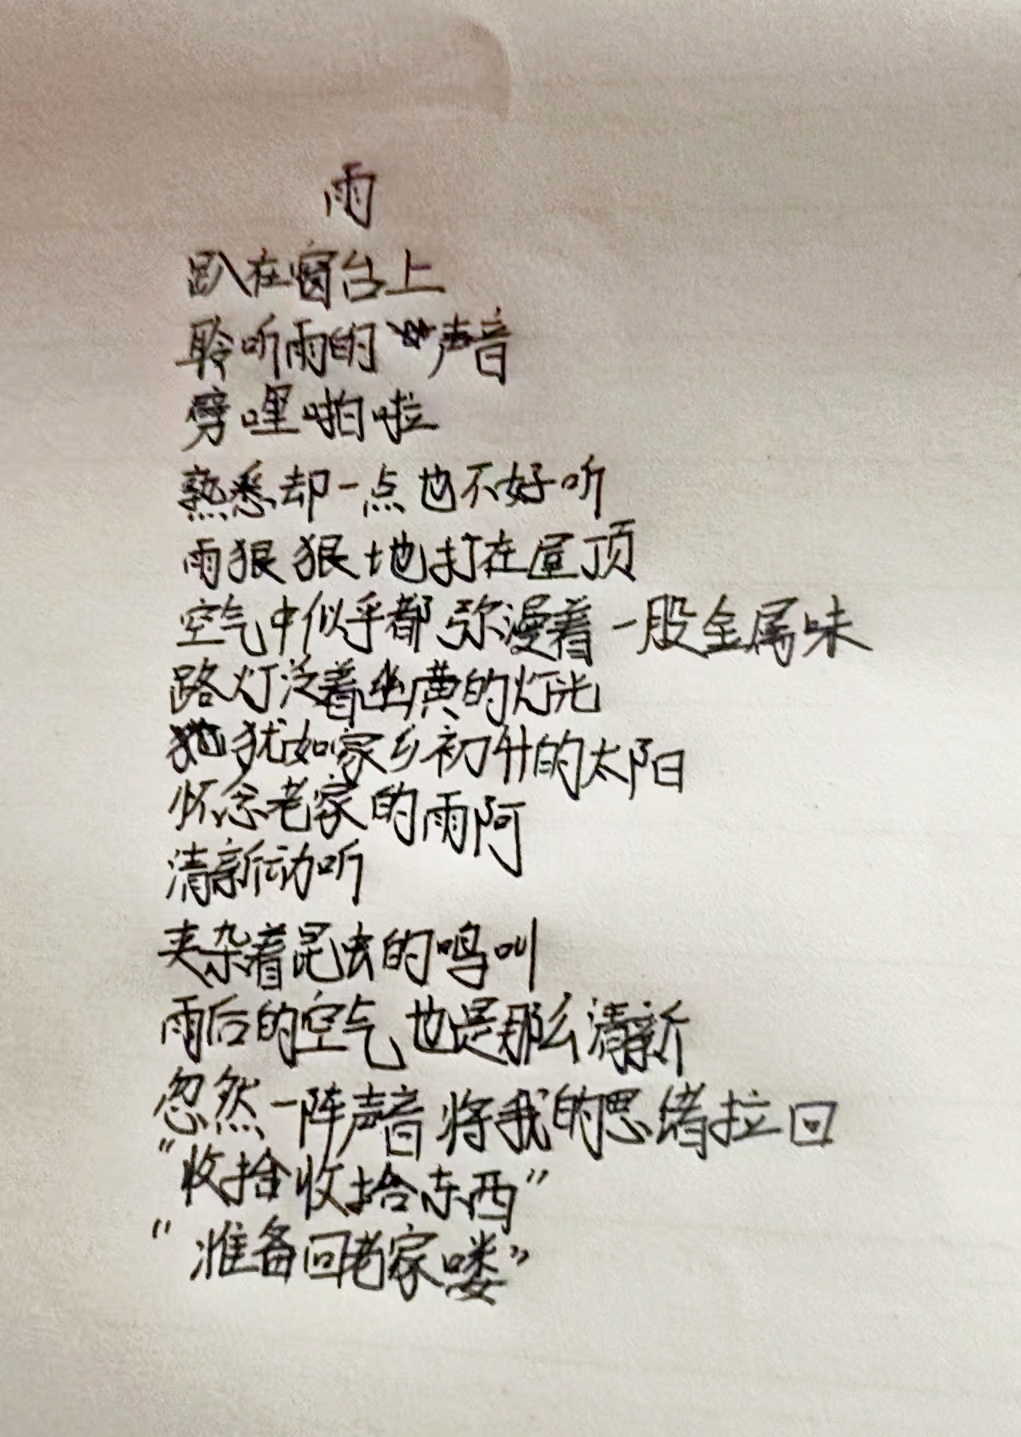 雨
趴在窗台上
聆听雨的声音
劈哩啪啦
熟悉却一点也不好听
雨狠狠地打在屋顶
空气中似乎都弥漫着一股金属味
路灯泛着黄的灯光
犹如家乡初升的太阳
怀念老家的雨阿
清新动听
夹杂着昆虫的鸣叫
雨后的空气也是那么清新
忽然一阵声音将我的思绪拉回
“收拾收拾东西”
“准备回老家喽”